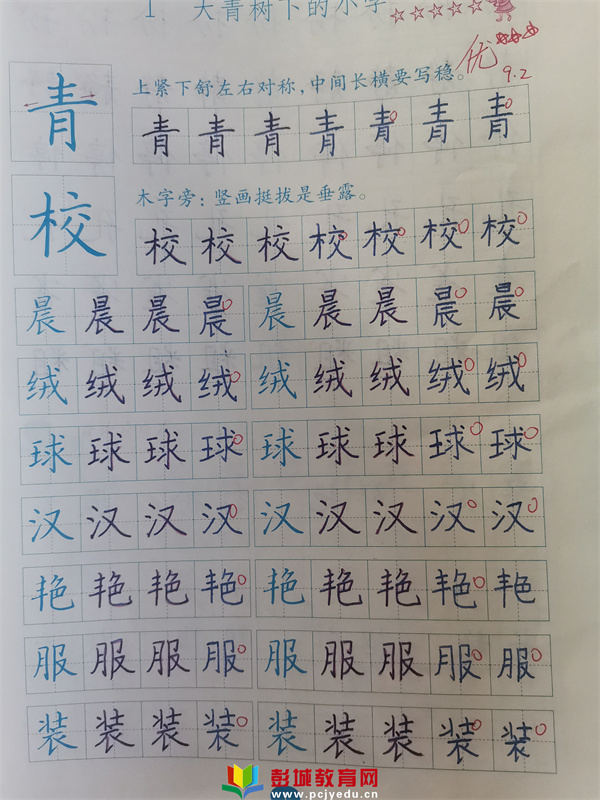 1 大青树下的小学
优
9.2
上紧下舒左右对称,中间长横要写稳。
青 青 青 青 青 青 青 青
木字旁:竖画挺拔是垂露。
校 校 校 校 校 校 校 校
晨 晨 晨 晨 晨 晨 晨 晨 晨
绒 绒 绒 绒 绒 绒 绒 绒 绒
球 球 球 球 球 球 球 球 球
汉 汉 汉 汉 汉 汉 汉 汉 汉
艳 艳 艳 艳 艳 艳 艳 艳 艳
服 服 服 服 服 服 服 服 服
装 装 装 装 装 装 装 装 装
彭城教育网
www.pcjyedu.cn